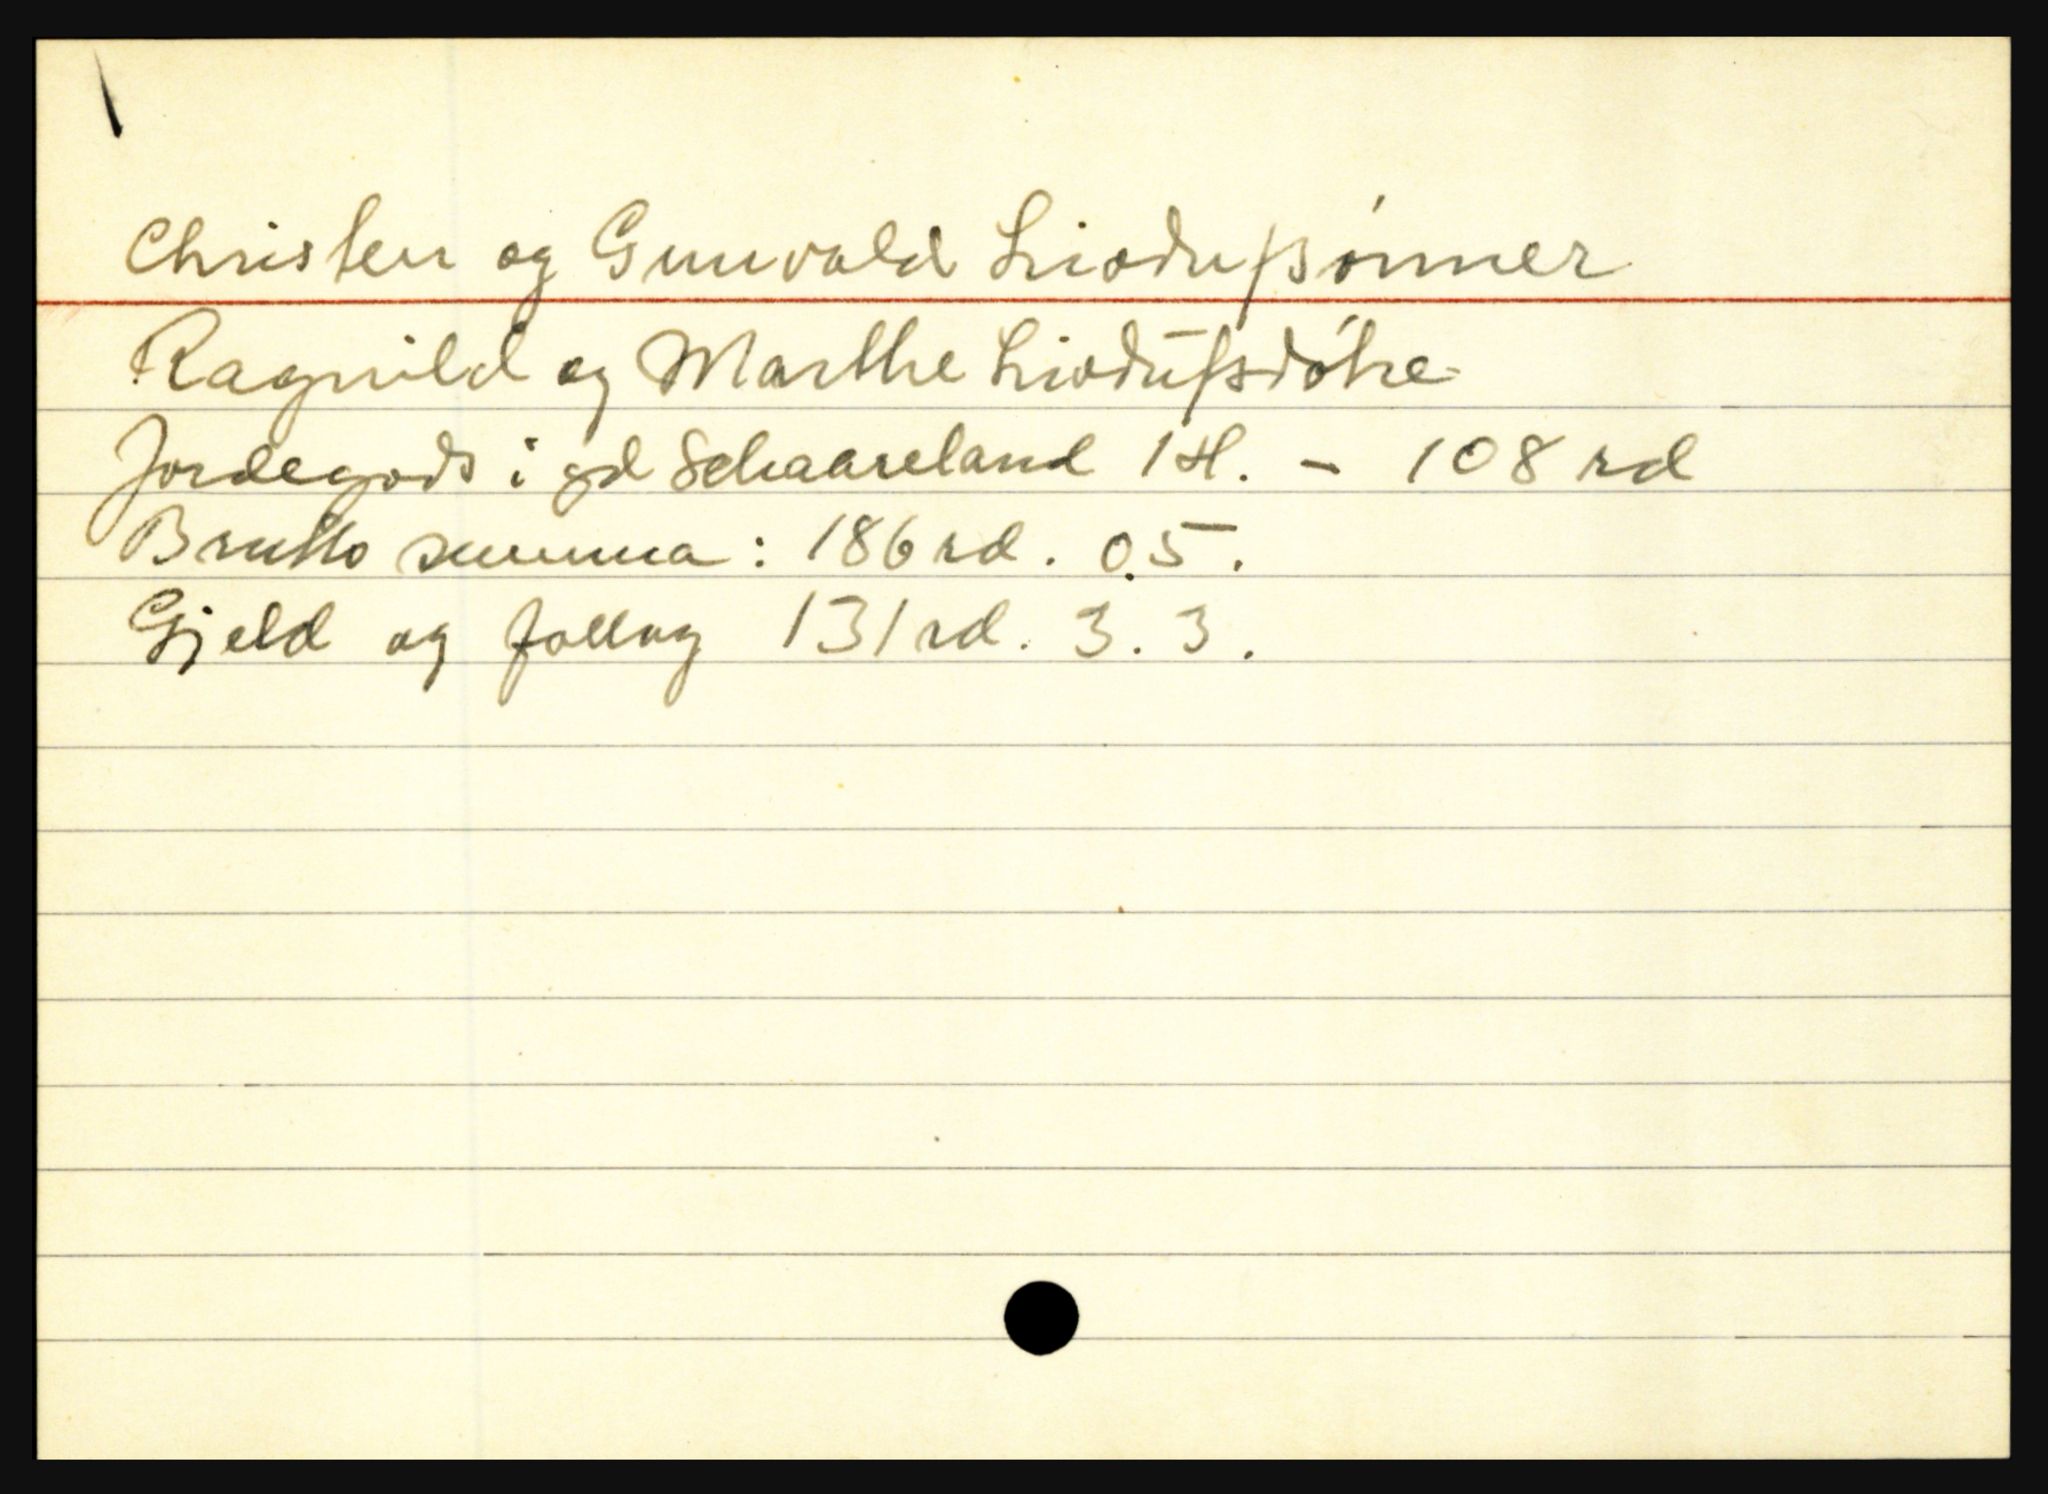 Christen og Gunvald Livdufssønner
Ragnild og Marthe Livdufsdøtre
Jordegods i gd Schaareland 1 H. - 108 rd
Brutto summa: 186 rd. 0.5.
Gjeld og follug 131 rd. 3. 3.